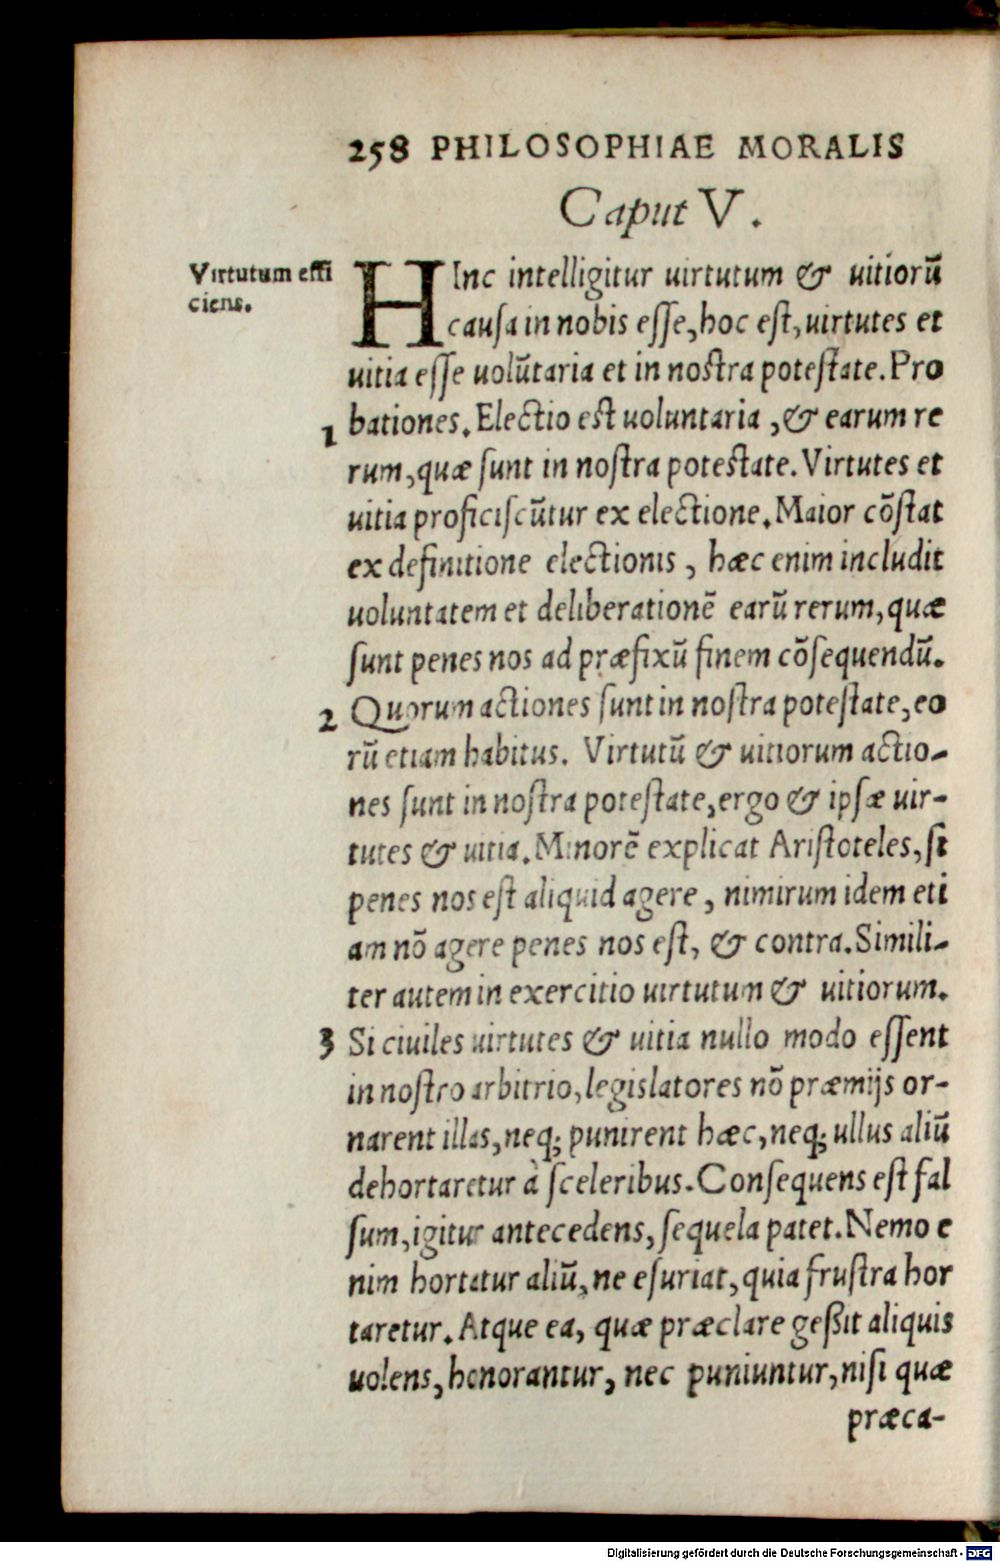 258 PHILOSOPHIAE MORALIS
Caput V.
Virtutum effi
ciens.
HInc intelligitur uirtutum & uitiorũ
causa in nobis esse, hoc est, uirtutes et
uitia esse uolũtaria et in nostra potestate. Pro
1 bationes. Electio est uoluntaria, & earum re
rum, quæ sunt in nostra potestate. Virtutes et
uitia proficiscũtur ex electione. Maior cõstat
ex definitione electionis, hæc enim includit
uoluntatem et deliberationẽ earũ rerum, quæ
sunt penes nos ad præfixũ finem cõsequendũ.
2 Quorum actiones sunt in nostra potestate, eo
rũ etiam habitus. Virtutũ & uitiorum actio-
nes sunt in nostra potestate, ergo & ipsæ uir-
tutes & uitia. Minorẽ explicat Aristoteles, si
penes nos est aliquid agere, nimirum idem eti
am nõ agere penes nos est, & contra. Simili-
ter autem in exercitio uirtutum & uitiorum.
3 Si ciuiles uirtutes & uitia nullo modo essent
in nostro arbitrio, legislatores nõ præmijs or-
narent illas, neq; punirent hæc, neq; ullus aliũ
dehortaretur à sceleribus. Consequens est fal
sum, igitur antecedens, sequela patet. Nemo e
nim hortatur aliũ, ne esuriat, quia frustra hor
taretur. Atque ea, quæ præclare geßit aliquis
uolens, honorantur, nec puniuntur, nisi quæ
præca-
Digitalisierung gefördert durch die Deutsche Forschungsgemeinschaft - DFG